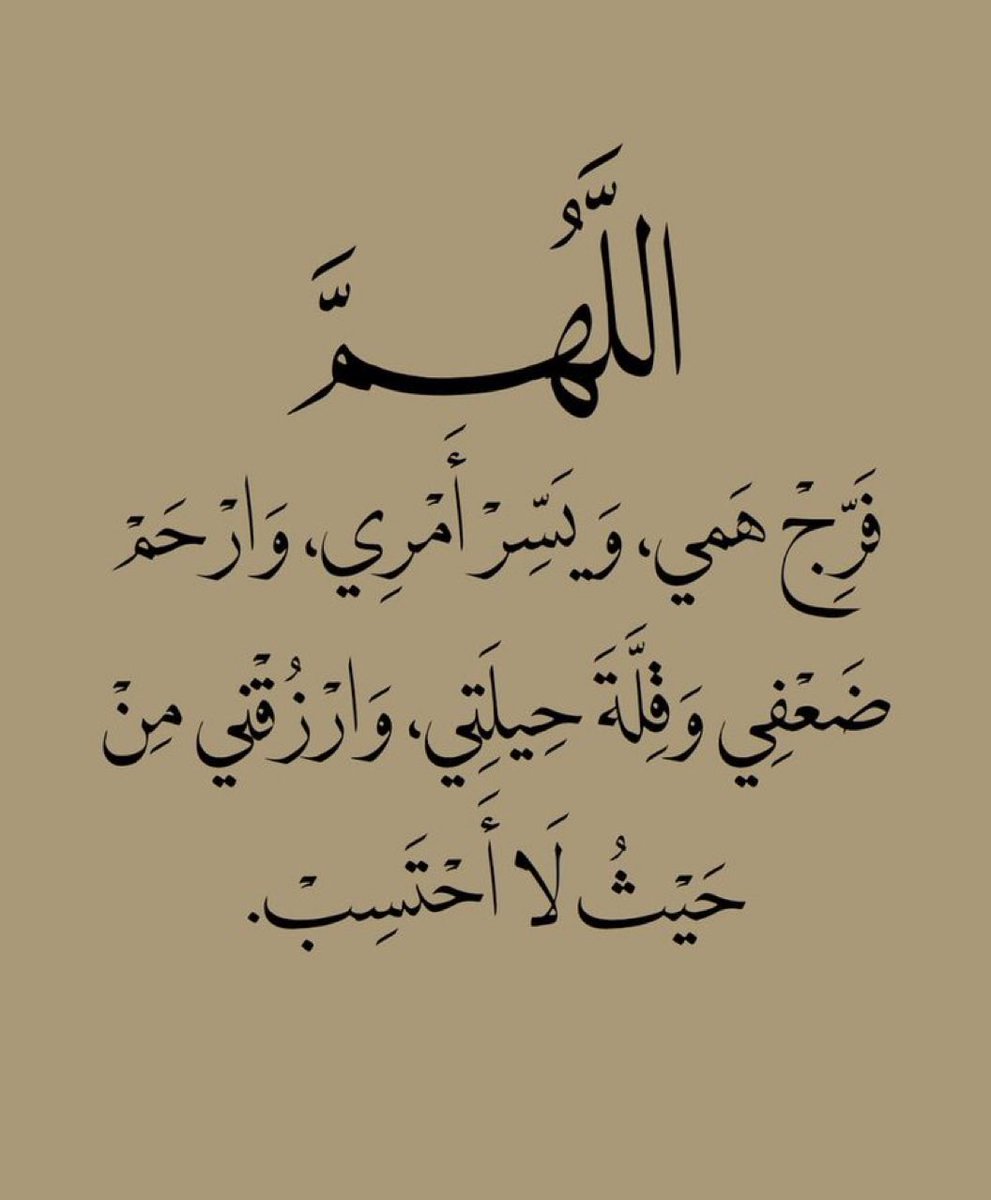 اللَّهُمَّ
فَرِّجْ هَمي، وَيَسِّرْ أَمْرِي، وَارْحَمْ
ضَعْفِي وَقِلَّةَ حِيلَتِي، وَارْزُقْني مِنْ
حَيْثُ لَا أَحْتَسِبْ.